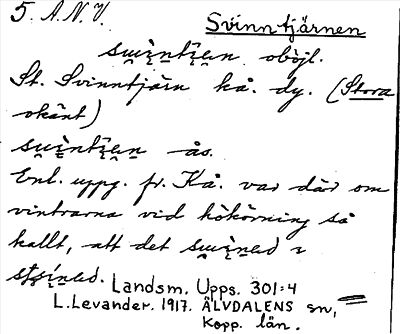 5. A. N. V.
Svinntjärnen
oböjl.
St. Svinntjärn kå. dy. (Stora
okänt)
ås.
Enl. uppg. fr. Kå. var där om
vintrarna vid hökörning så
kallt, att det
Landsm. Upps. 301:4
L. Levander. 1917. ÄLVDALENS sn,
Kopp. län.